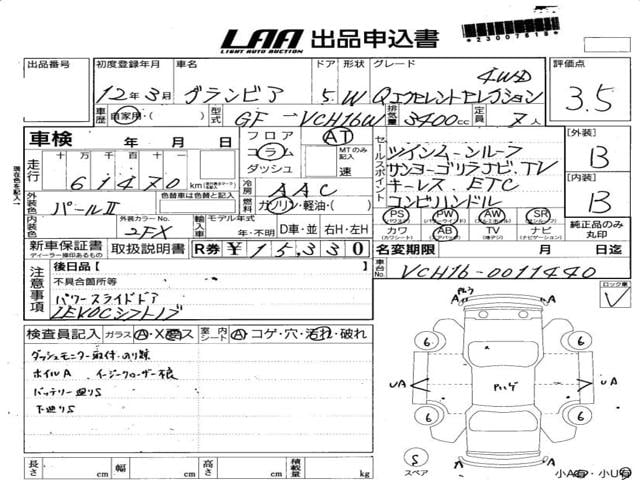 LAA 出品申込書
LIGHT AUTO AUCTION
出品番号 初度登録年月 車名 ドア 形状 グレード 評価点
12年3月 グランビア 5 W Qエクセレントセレクション 4WD 3.5
車歴 自家用 型式 GF-VCH16W 排気量 3400cc 定員 7人
車検 年 月 日
フロア コラム ダッシュ
AT MTのみ記入 速
セールスポイント
ツインムーンルーフ
サンヨーゴリラナビ、TV
キーレス ETC
コンビハンドル
[外装] B
[内装] B
走行 十 万 千 百 十 一
61470 km
冷房 AAC
外装色 パールII 色替車は色替と記入
燃料 ガソリン・軽油・( )
PS PW AW SR
カワ AB TV ナビ
純正品のみ丸印
内装色 外装カラーNo. 2FX
輸入車 モデル年式 年・不明 D車・並 右H・左H
新車保証書 取扱説明書 R券 ¥15,330
ディーラー捺印あるもの
名変期限 月 日迄
車台No. VCH16-0011440
注意事項 後日品[ ]
不具合箇所等
パワースライドドア
1EVOCシフトノブ
ロック車
検査員記入 ガラス A・X・ス 室内 シート A・コゲ・穴・汚れ・破れ
ダッシュモニター取付・のり跡
ホイルA イージークローザー不良
バッテリー廻りS
下廻りS
A A
6 6
UA UA
6 6
A A
S
スペア
小A・小U
長さ cm 幅 cm 高さ cm 積載量 kg